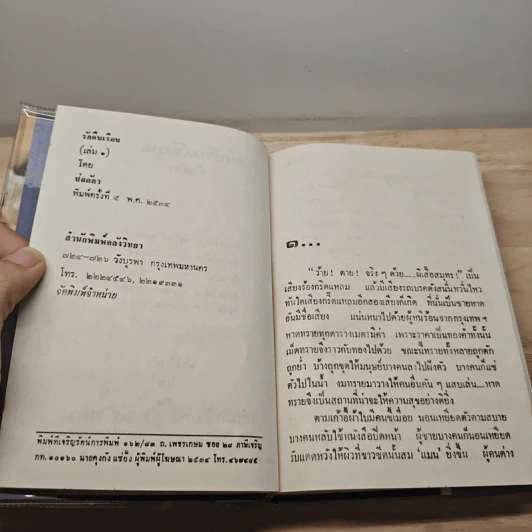 รัตคืนเรือน
(เล่ม ๑)
โดย
ช่อลัดา
พิมพ์ครั้งที่ ๕ พ.ศ. ๒๕๓๔
สำนักพิมพ์คลังวิทยา
๗๒๔–๗๒๖ วังบูรพา กรุงเทพมหานคร
โทร. ๒๒๒๔๕๔๖, ๒๒๑๙๓๓๑
จัดพิมพ์จำหน่าย
พิมพ์ที่เจริญรัตน์การพิมพ์ ๑๖๒/๔๓ ถ. เพชรเกษม ซอย ๒๘ ภาษีเจริญ
กท. ๑๐๑๖๐ นายคุงกัง แซ่อึ้ง ผู้พิมพ์ผู้โฆษณา ๒๕๓๔ โทร. ๔๖๗๙๔๕
๑...
“ว้าย! ตาย! จริง ๆ ด้วย....ผีเสื้อสมุทร!” เป็น
เสียงร้องกรี๊ดแหลม แล้วมีเสียงรถเบรคดังสนั่นหวั่นไหว
ทันใดเสียงกรี๊ดแหลมอีกสองเสียงก็เกิด ที่นั่นเป็นชายหาด
อันมีชื่อเสียง แน่นหนาไปด้วยผู้หนีร้อนจากกรุงเทพ ฯ
หาดทรายทุกตารางเมตรมีค่า เพราะราคาเป็นทองคำทั้งนั้น
เม็ดทรายจึงราวกับทองไปด้วย ขณะนี้ทรายทั้งหลายถูกตัก
ถูกย่ำ บ้างถูกขุดให้มนุษย์บางคนลงไปฝังตัว บางคนก็แช่
ตัวไปในน้ำ งมทรายมาวางให้คนอื่นคัน ๆ แสบเล่น....หาด
ทรายจึงเป็นสถานที่น่าจะให้ความสุขอย่างดียิ่ง
ตามเก้าอี้ผ้าใบมีคนขี้เมื่อย นอนเหยียดตัวตามสบาย
บางคนหลับใช้หนังสือปิดหน้า ผู้ชายบางคนก็นอนเหยียด
รับแดดหวังให้ผิวที่ขาวซีดนั้นสม “แมน” ยิ่งขึ้น ผู้คนต่าง